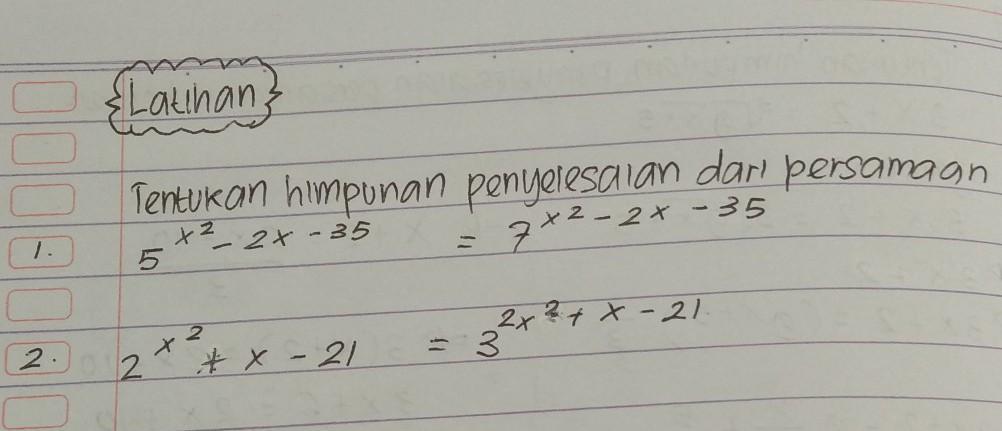 Latihan
Tentukan himpunan penyelesaian dari persamaan
1. 5^(x² - 2x - 35) = 7^(x² - 2x - 35)
2. 2^(x² + x - 21) = 3^(2x² + x - 21)